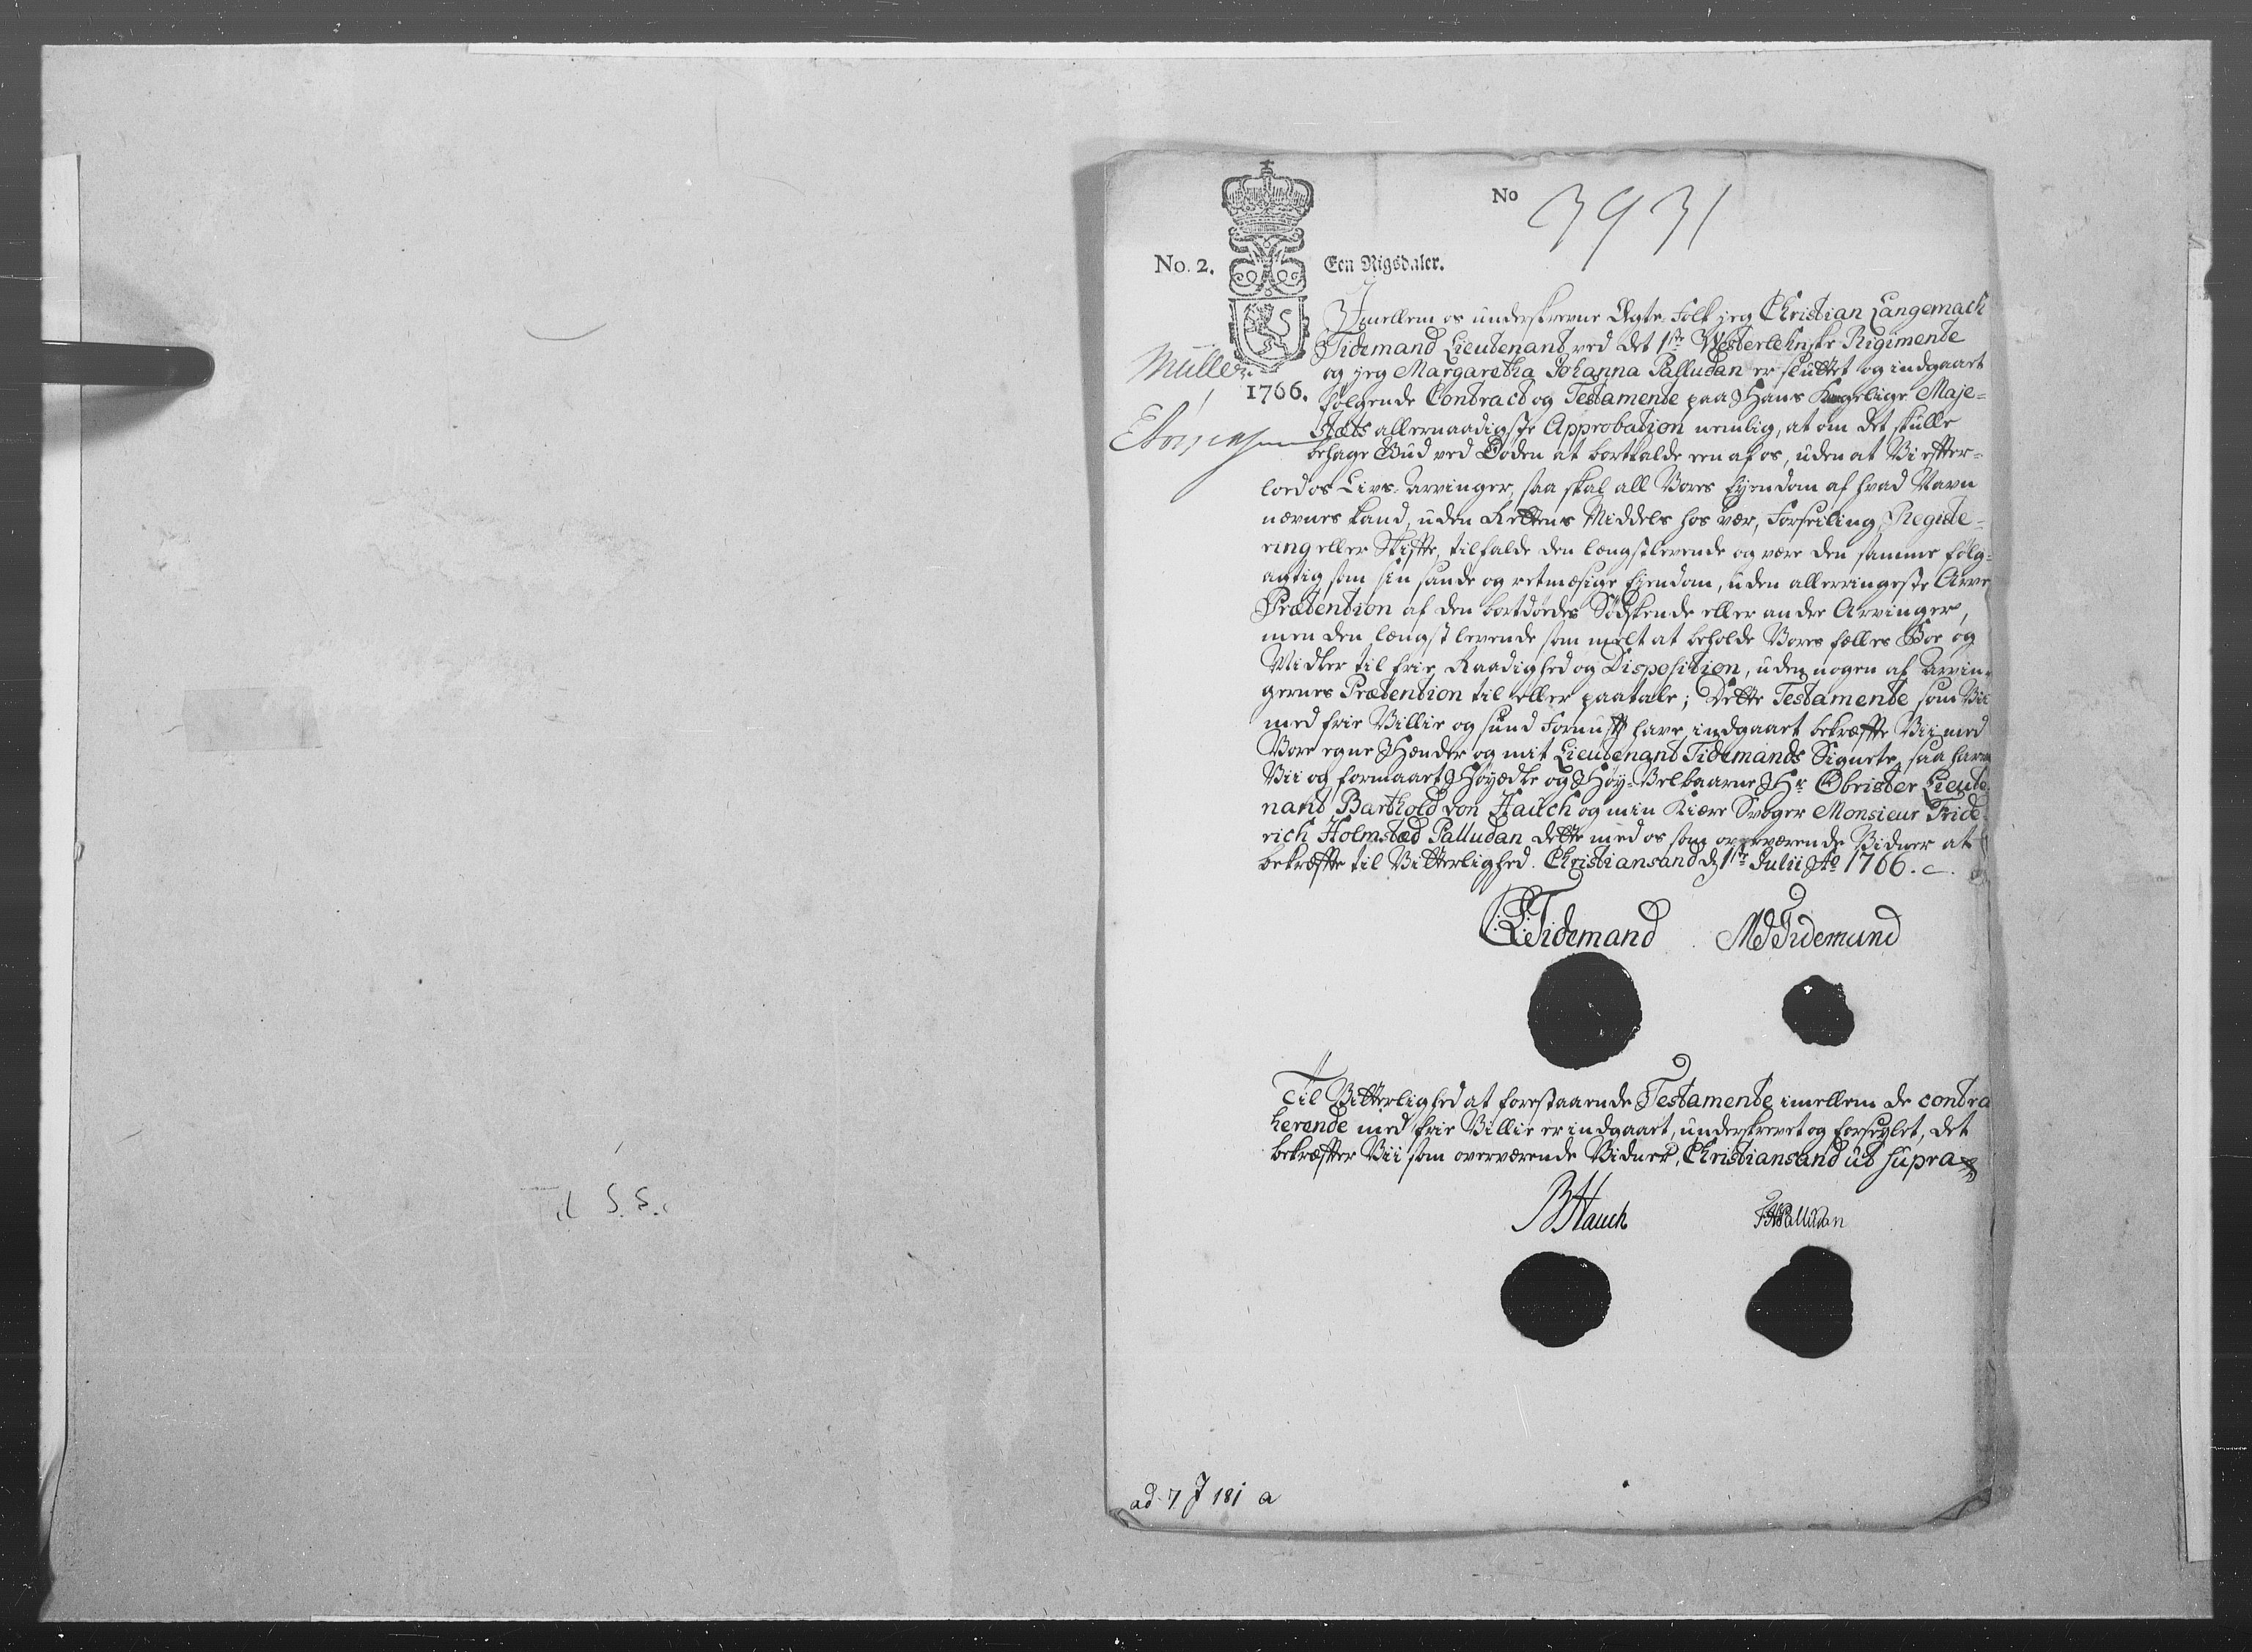 No 3931
No. 2. Een Rigsdaler.
Müller
1766.
Imellem os underskrevne Ægte-Folk jeg Christian Langemach
Tidemand Lieutenant ved det 1ste Westerlehnske Rigimente
og jeg Margaretha Johanna Palludan er sluttet og indgaaet
følgende Contract og Testamente paa Hans Kongelige Maje-
stæts allernaadigste Approbation nemlig, at om det skulle
behage Gud ved Døden at bortkalde een af os, uden at Vi efter-
lod os Livs-Arvinger, saa skal all Vores Ejendom af hvad Navn
nævnes kand, uden Rettens Middels hos vær, Forseiling, Registe-
ring eller Skifte, tilfalde den længstlevende og være den samme følg-
agtig som sin sande og retmæsige Ejendom, uden allerringeste Arve
Prætention af den bortdødes Sødskende eller andre Arvinger,
men den længst levende som melt at beholde Vores fælles Boe og
Midler til frie Raadighed og Disposition, uden nogen af Arvin-
gernes Prætention til eller paatale; Dette Testamente som Vii
med frie Villie og sund Fornuft have indgaaet bekræfte Vii med
Vore egne Hænder og mit Lieutenant Tidemands Signete, saa haver
Vii og formaaet Høyædle og Høy-Velbaarne Hr Obrister Lieute
nant Barthold von Hauch og min Kiære Svoger Monsieur Fride-
rich Holmsted Palludan dette med os som overværende Vidner at
bekræfte til Vitterlighed. Christiansand d 1ste Julii Ao 1766.
CLTidemand MJTidemand
Til Vitterlighed at forestaaende Testamente imellem de contra
herende med frie Villie er indgaaet, underskrevet og forseglet, det
bekræfter Vii som overværende Vidner, Christiansand ut supra
BHauch FHPalludan
Til S. S.
ad 7 J 181 a